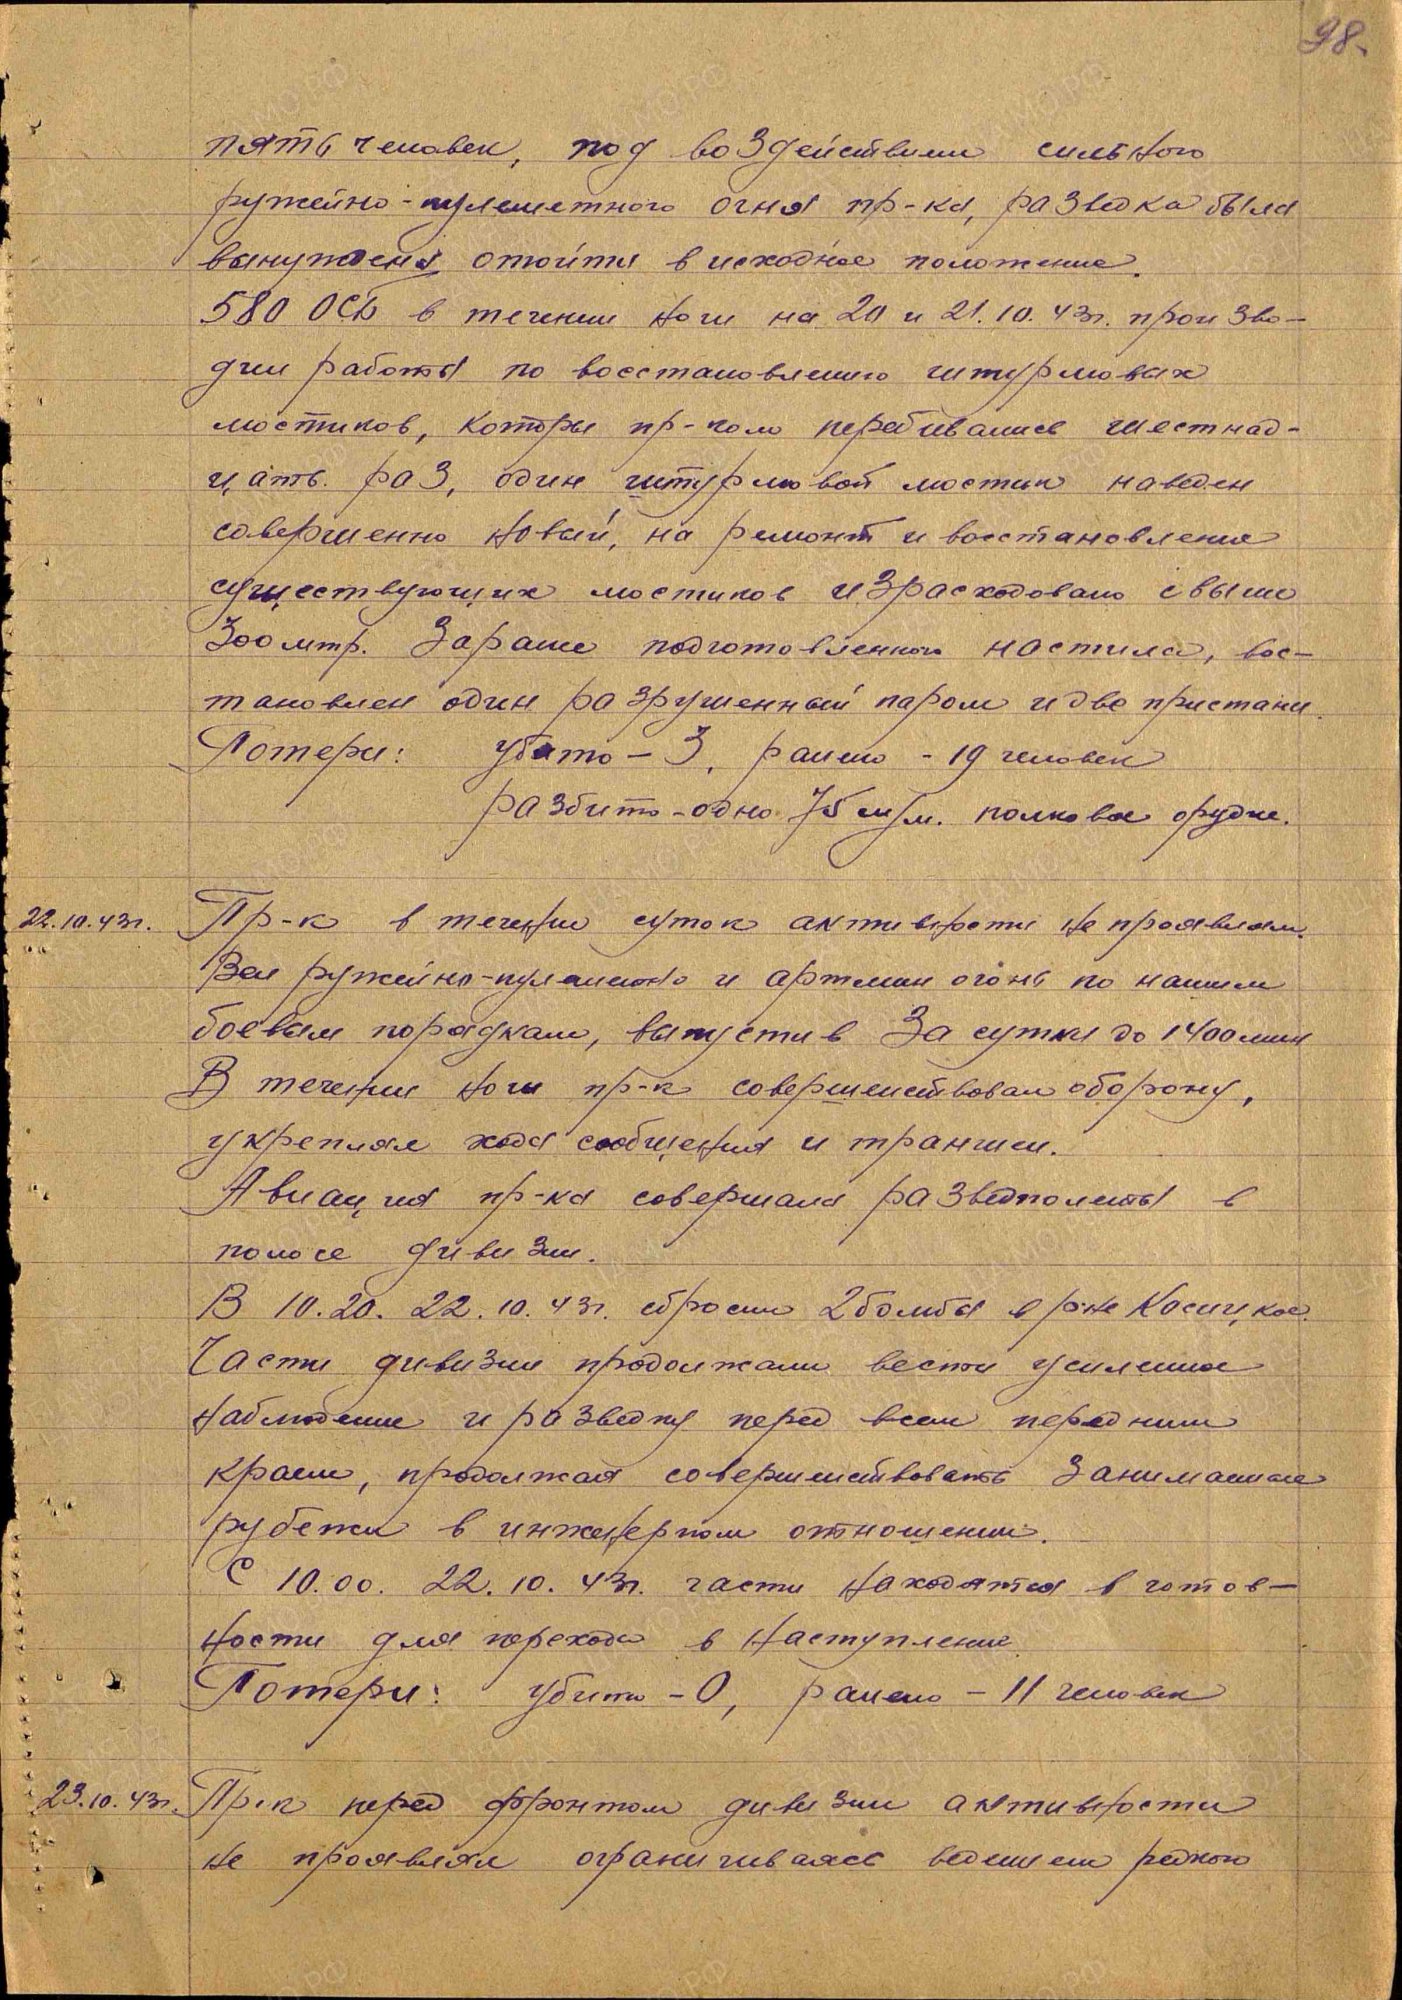 98.
пять человек, под воздействием сильного
ружейно-пулеметного огня пр-ка, разведка была
вынуждена отойти в исходное положение.
580 ОСБ в течении ночи на 20 и 21.10.43г. произво-
дил работы по восстановлению штурмовых
мостиков, которые пр-ком перебивались шестнад-
цать раз, один штурмовой мостик наведен
совершенно новый, на ремонт и восстановление
существующих мостиков израсходовано свыше
300 мтр. заранее подготовленного настила, вос-
тановлен один разрушенный паром и две пристани.
Потери: убито - 3, ранено - 19 человек
разбито - одно 75 м/м. полковое орудие.
22.10.43г. Пр-к в течении суток активности не проявлял.
Вел ружейно-пулеметно и артмин огонь по нашим
боевым порядкам, выпустив за сутки до 1400 мин
В течении ночи пр-к совершенствовал оборону,
укреплял хода сообщения и траншеи.
Авиация пр-ка совершала разведполеты в
полосе дивизии.
В 10.20. 22.10.43г. сбросил 2 бомбы в р-не Косицкое.
Части дивизии продолжали вести усиленное
наблюдение и разведку перед всем передним
краем, продолжая совершенствовать занимаемые
рубежи в инженерном отношении.
С 10.00. 22.10.43г. части находятся в готов-
ности для перехода в наступление
Потери: убито - 0, ранено - 11 человек
23.10.43г. Пр-к перед фронтом дивизии активности
не проявлял ограничиваясь ведением редкого